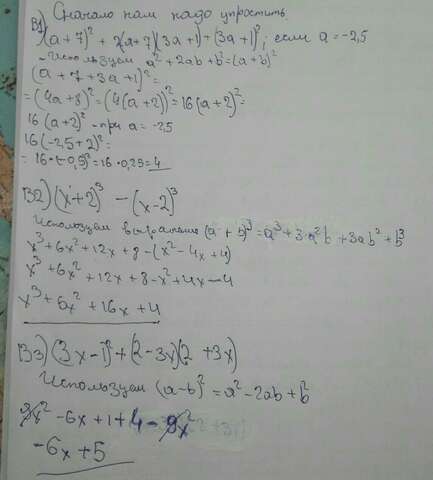 Сначало нам надо упростить.
В1) (a+7)² + 2(a+7)(3a+1)+(3a+1)², если a=-2,5
- Используем a²+2ab+b²=(a+b)²
(a+7+3a+1)²=
=(4a+8)²=(4(a+2))²=16(a+2)²=
16(a+2)² - при a=-2,5
16(-2,5+2)²=
=16·(-0,5)²=16·0,25=4
В2) (x+2)³ - (x-2)³
Используем выражение (a+b)³=a³+3·a²b+3ab²+b³
x³+6x²+12x+8-(x²-4x+4)
x³+6x²+12x+8-x²+4x-4
x³+6x²+16x+4
В3) (3x-1)²+(2-3x)(2+3x)
Используем (a-b)²=a²-2ab+b²
9x²-6x+1+4-9x²
-6x+5